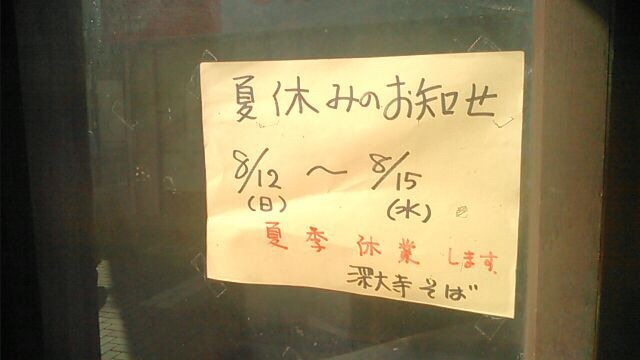 夏休みのお知せ
8/12 〜 8/15
(日) (水)
夏季休業します。
深大寺そば